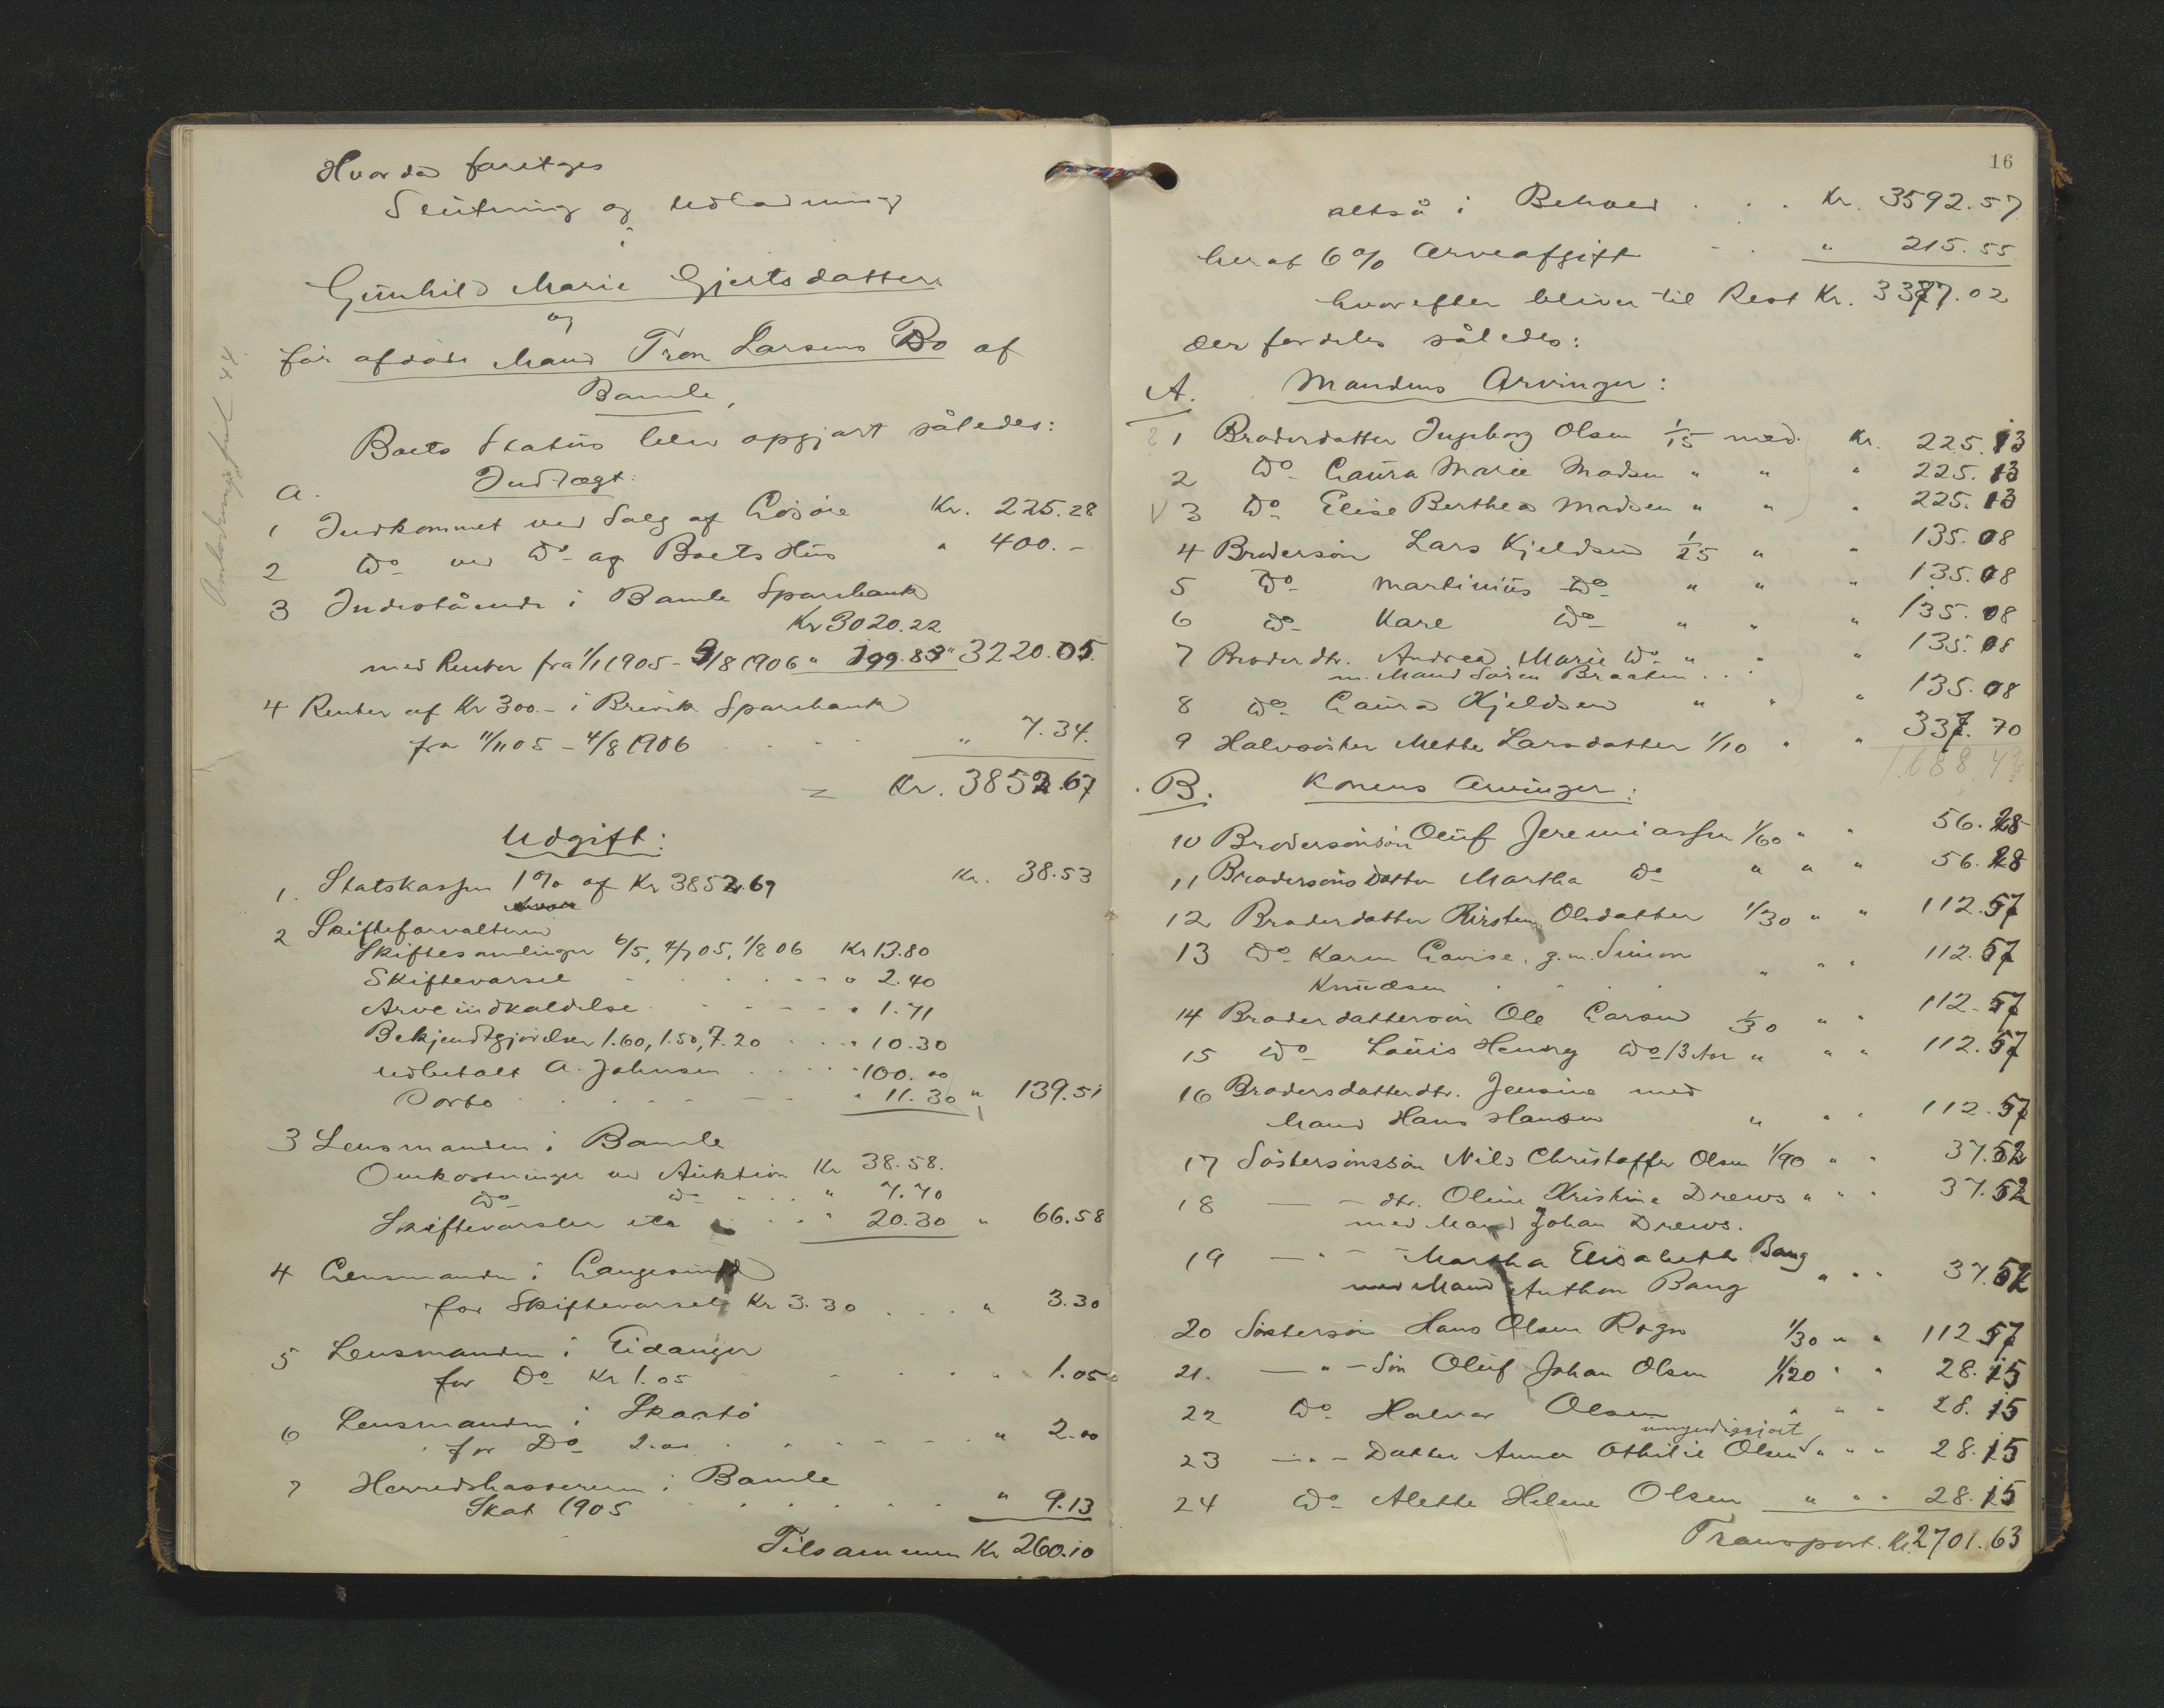 Hvorda foretages
Slutning og Udlodning
i
Gunhild Marie Gjertsdatters
og
før afdøde Mand Tron Larsens Bo af
Bamle,
Boets Status blev opgjort således:
A. Indtægt:
1 Indkommet ved Salg af Løsøre Kr. 225.28
2 Do ved Do af Boets Hus " 400.-
3 Indestående i Bamle Sparebank
Kr 3020.22
med Renter fra 1/1 1905 - 9/8 1906 " 199.83 " 3220.05.
4 Renter af Kr 300.- i Brevik Sparebank
fra 11/11 05 - 4/8 1906 " 7.34.
= Kr. 3852.67
Udgift:
1. Statskassen 1% af Kr 3852.67 Kr. 38.53
2 Skifteforvalteren
Skiftesamlinger 6/5, 4/7 05, 1/8 06 Kr 13.80
Skiftevarsel " 2.40
Arveindkaldelse " 1.71
Bekjendtgjørelser 1.60, 1.50, 7.20 " 10.30
Udbetalt A. Johnsen " 100.00
Porto " 11.30 " 139.51
3 Lensmanden i Bamle
Omkostninger ved Auktion Kr 38.58.
Do Do " 7.70
Skiftevarsler etc " 20.30 " 66.58
4 Lensmanden i Langesund
for Skiftevarsel Kr 3.30 " 3.30
5 Lensmanden i Eidanger
for Do Kr 1.05 " 1.05
6 Lensmanden i Skaatø
for Do 2.00 " 2.00
7 Herredskassereren i Bamle
Skat 1905 " 9.13
Tilsammen Kr 260.10
16
altså i Behold Kr. 3592.57
heraf 6% Arveafgift " 215.55
hvorefter bliver til Rest Kr. 3377.02
der fordeles således:
A. Mandens Arvinger:
1 Broderdatter Ingeborg Olsen 1/15 med Kr. 225.13
2 Do Laura Marie Madsen " " " 225.13
V 3 Do Elise Berthea Madsen " " " 225.13
4 Brodersøn Lars Kjeldsen 1/25 " " 135.08
5 Do Martinius Do " " " 135.08
6 Do Kare Do " " " 135.08
7 Broderdtr. Andrea Marie Do " " " 135.08
m. Mand Søren Braaten
8 Do Laura Kjeldsen " " " 135.08
9 Halvsøster Mette Larsdatter 1/10 " " 337.70
1.688.49
B. Konens Arvinger:
10 Brodersønsøn Oluf Jeremiassen 1/60 " " 56.28
11 Brodersønsdatter Martha Do " " " 56.28
12 Broderdatter Kirsten Olsdatter 1/30 " " 112.57
13 Do Karen Lovise, g.m. Simon
Knudsen " " " 112.57
14 Broderdattersøn Ole Larsen 1/30 " " 112.57
15 Do Louis Henry Do 13 Aar " " " 112.57
16 Brodersdatterdtr. Jensine med
Mand Hans Hansen " " " 112.57
17 Søstersønssøn Nils Christoffer Olsen 1/90 " " 37.52
18 — - dtr. Oline Kristine Drews " " " 37.52
med Mand Johan Drews.
19 — " - Martha Elisabeth Bang
med Mand Anthon Bang " " " 37.52
20 Søstersøn Hans Olsen Rogn 1/30 " " 112.57
21. — " - Søn Oluf Johan Olsen 1/120 " " 28.15
22 Do Halvor Olsen " " " 28.15
umyndiggjort
23 — " - Datter Anna Othilie Olsen " " " 28.15
24 Do Alette Helene Olsen " " " 28.15
Transport. Kr. 2701.63